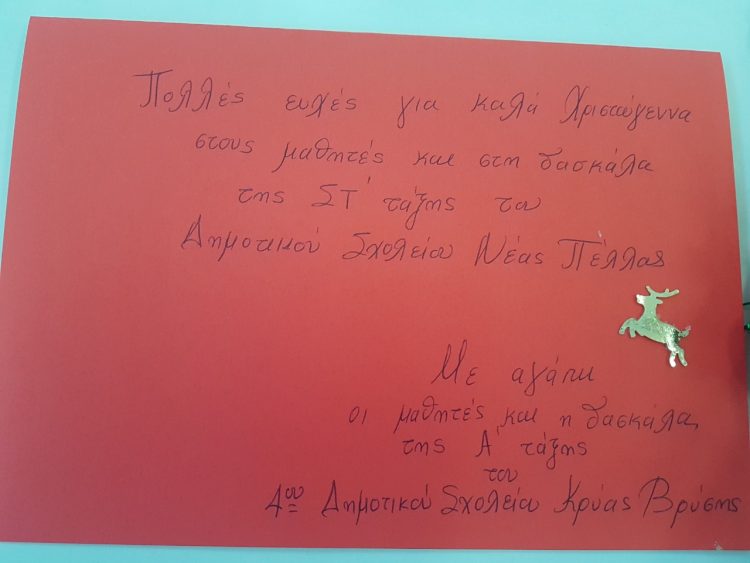 Πολλές ευχές για καλά Χριστούγεννα
στους μαθητές και στη δασκάλα
της ΣΤ' τάξης του
Δημοτικού Σχολείου Νέας Πέλλας
Με αγάπη
οι μαθητές και η δασκάλα,
της Α' τάξης
του
4ου Δημοτικού Σχολείου Κρύας Βρύσης